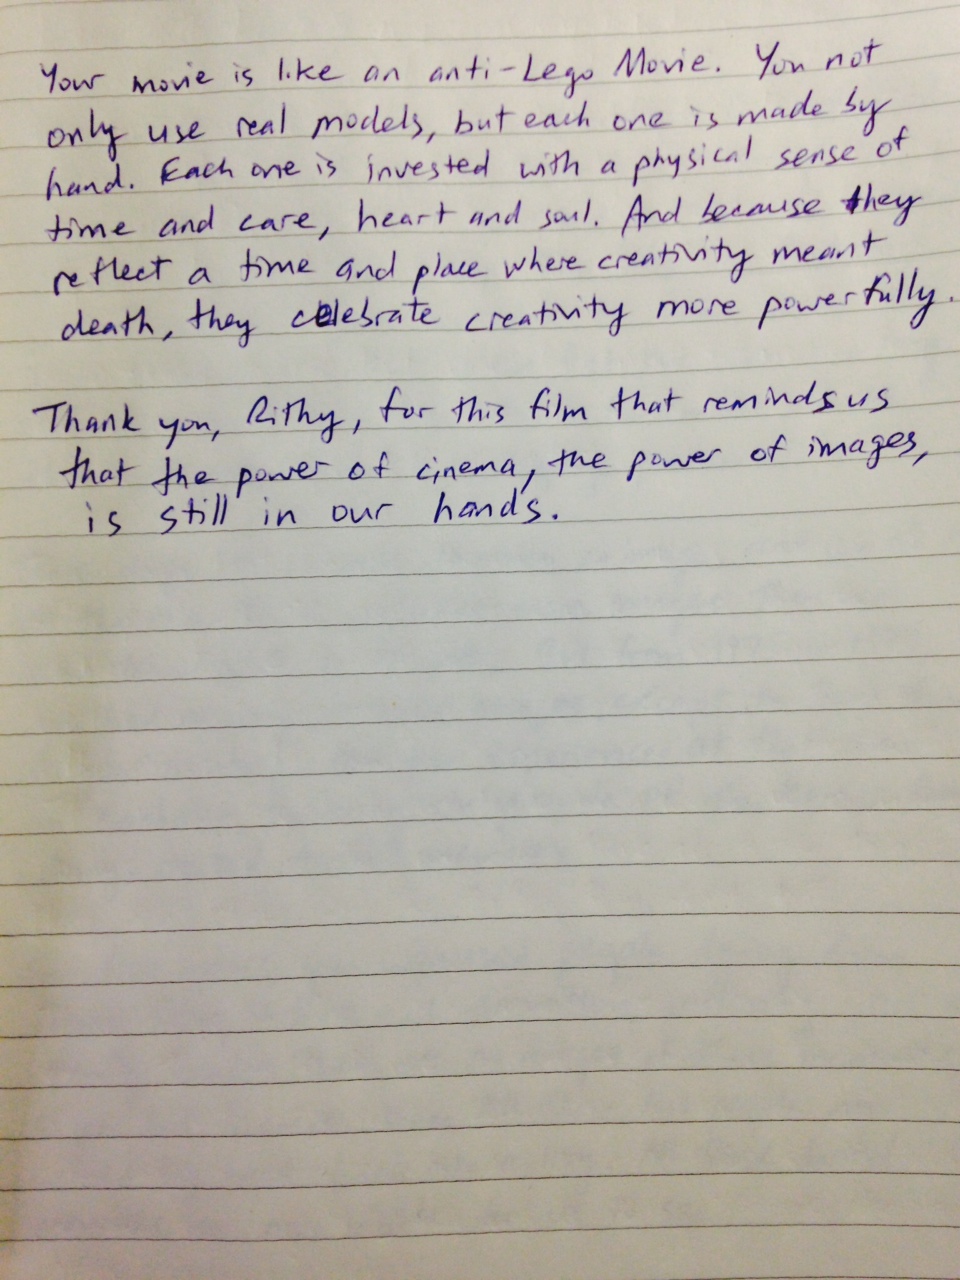 Your movie is like an anti-Lego Movie. You not
only use real models, but each one is made by
hand. Each one is invested with a physical sense of
time and care, heart and soul. And because they
reflect a time and place where creativity meant
death, they celebrate creativity more powerfully.
Thank you, Rithy, for this film that reminds us
that the power of cinema, the power of images,
is still in our hands.